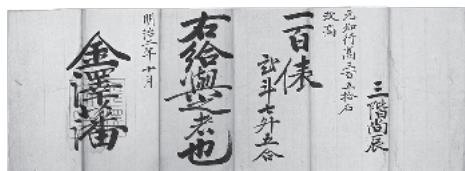 三階尚辰
元知行高三百五拾石
改高
一百俵
弐斗七升五合
右給與之者也
明治三年十月
金澤藩